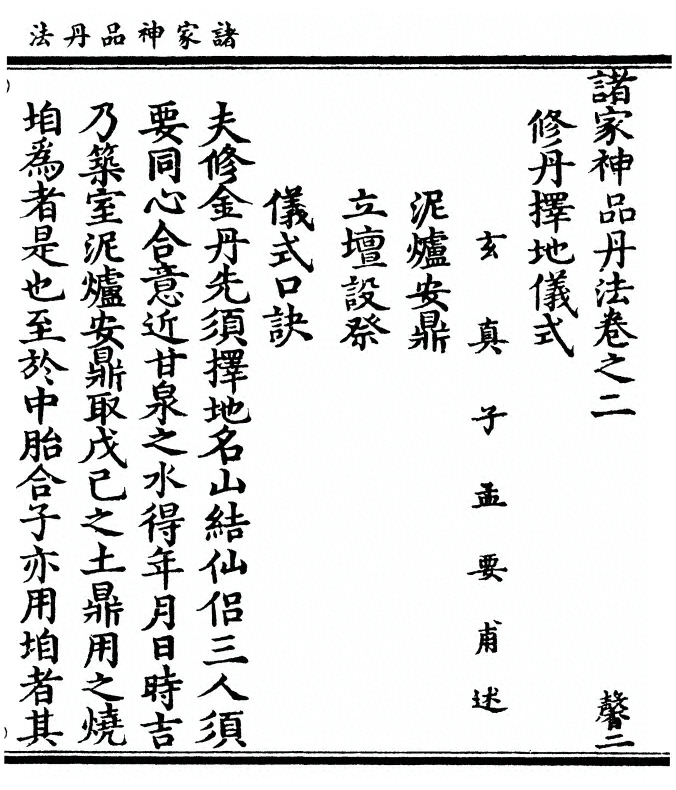 諸家神品丹法
諸家神品丹法卷之二　馨二
修丹擇地儀式
玄真子孟要甫述
泥爐安鼎
立壇設祭
儀式口訣
夫修金丹先須擇地名山結仙侶三人須
要同心合意近甘泉之水得年月日時吉
乃築室泥爐安鼎取戊己之土鼎用之燒
垍為者是也至於中胎合子亦用垍者其